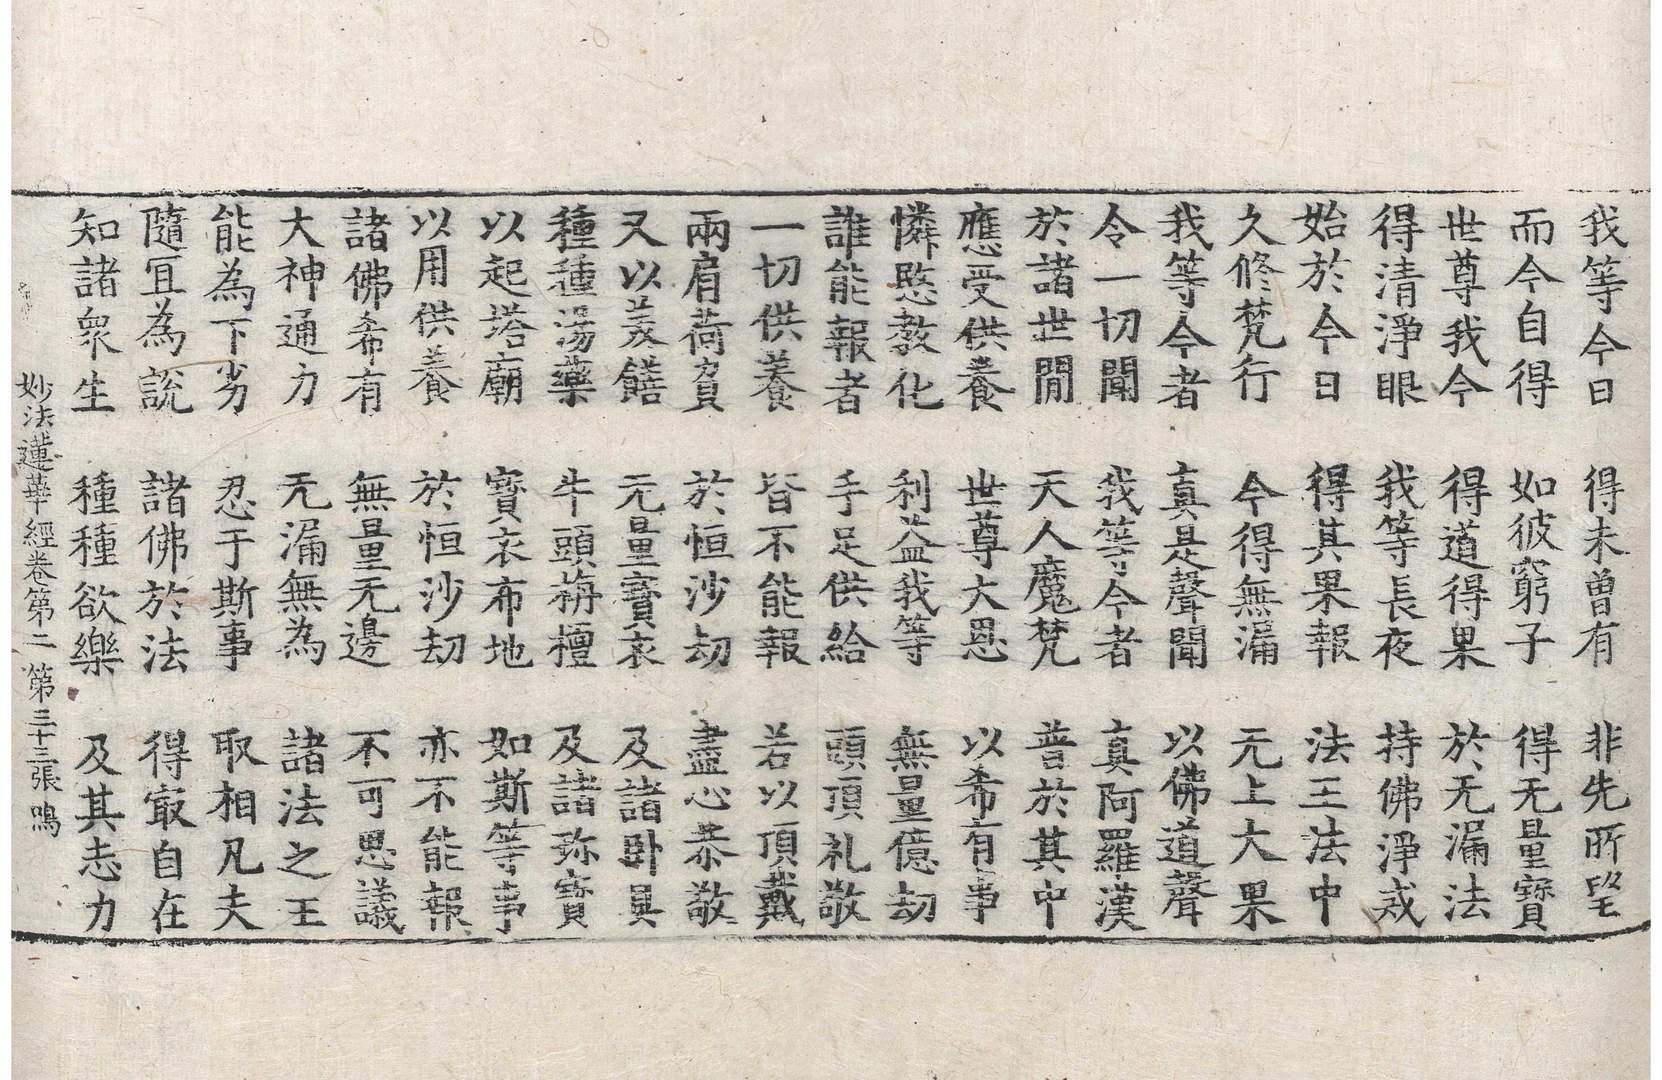 我等今日 得未曾有 非先所望
而今自得 如彼窮子 得无量寶
世尊我今 得道得果 於无漏法
得清淨眼 我等長夜 持佛淨戒
始於今日 得其果報 法王法中
久修梵行 今得無漏 无上大果
我等今者 真是聲聞 以佛道聲
令一切聞 我等今者 真阿羅漢
於諸世間 天人魔梵 普於其中
應受供養 世尊大恩 以希有事
憐愍教化 利益我等 無量億劫
誰能報者 手足供給 頭頂礼敬
一切供養 皆不能報 若以頂戴
兩肩荷負 於恒沙劫 盡心恭敬
又以美饍 无量寶衣 及諸卧具
種種湯藥 牛頭栴檀 及諸珎寶
以起塔廟 寶衣布地 如斯等事
以用供養 於恒沙劫 亦不能報
諸佛希有 無量无邊 不可思議
大神通力 无漏無為 諸法之王
能為下劣 忍于斯事 取相凡夫
隨冝為說 諸佛於法 得㝡自在
知諸衆生 種種欲樂 及其志力
妙法蓮華經卷第二 第三十三張 鳴